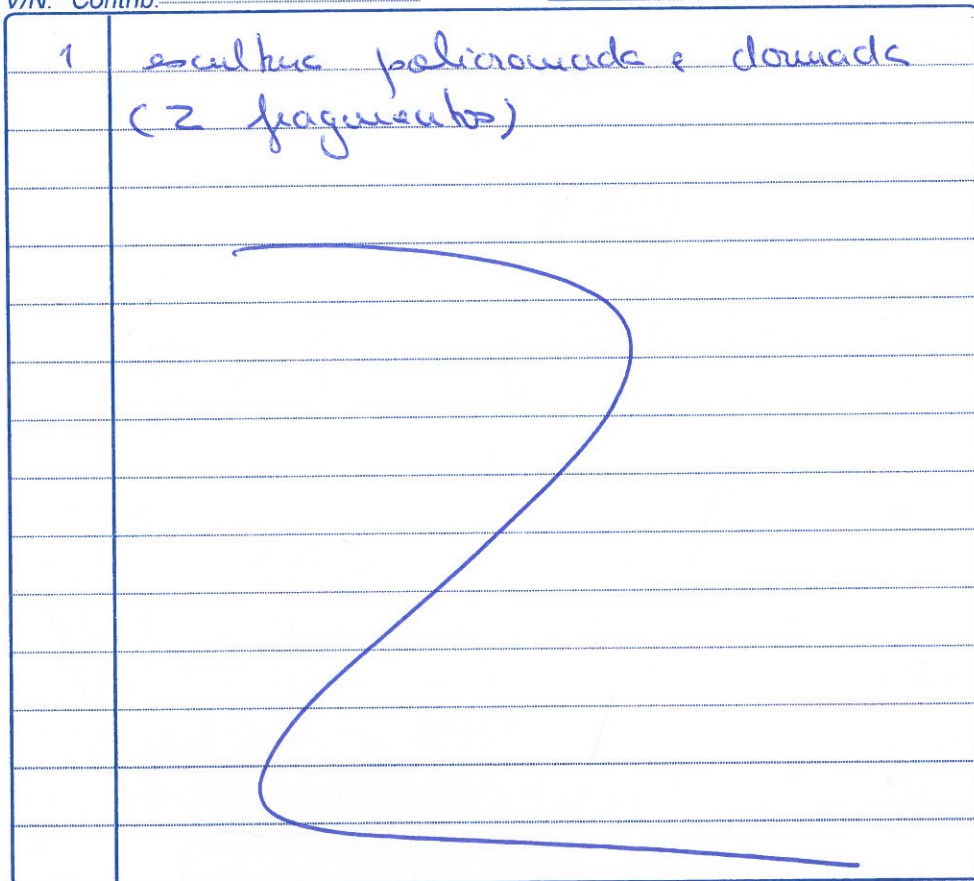 V/N. Contrib.
1 escultura policromada e dourada
(2 fragmentos)